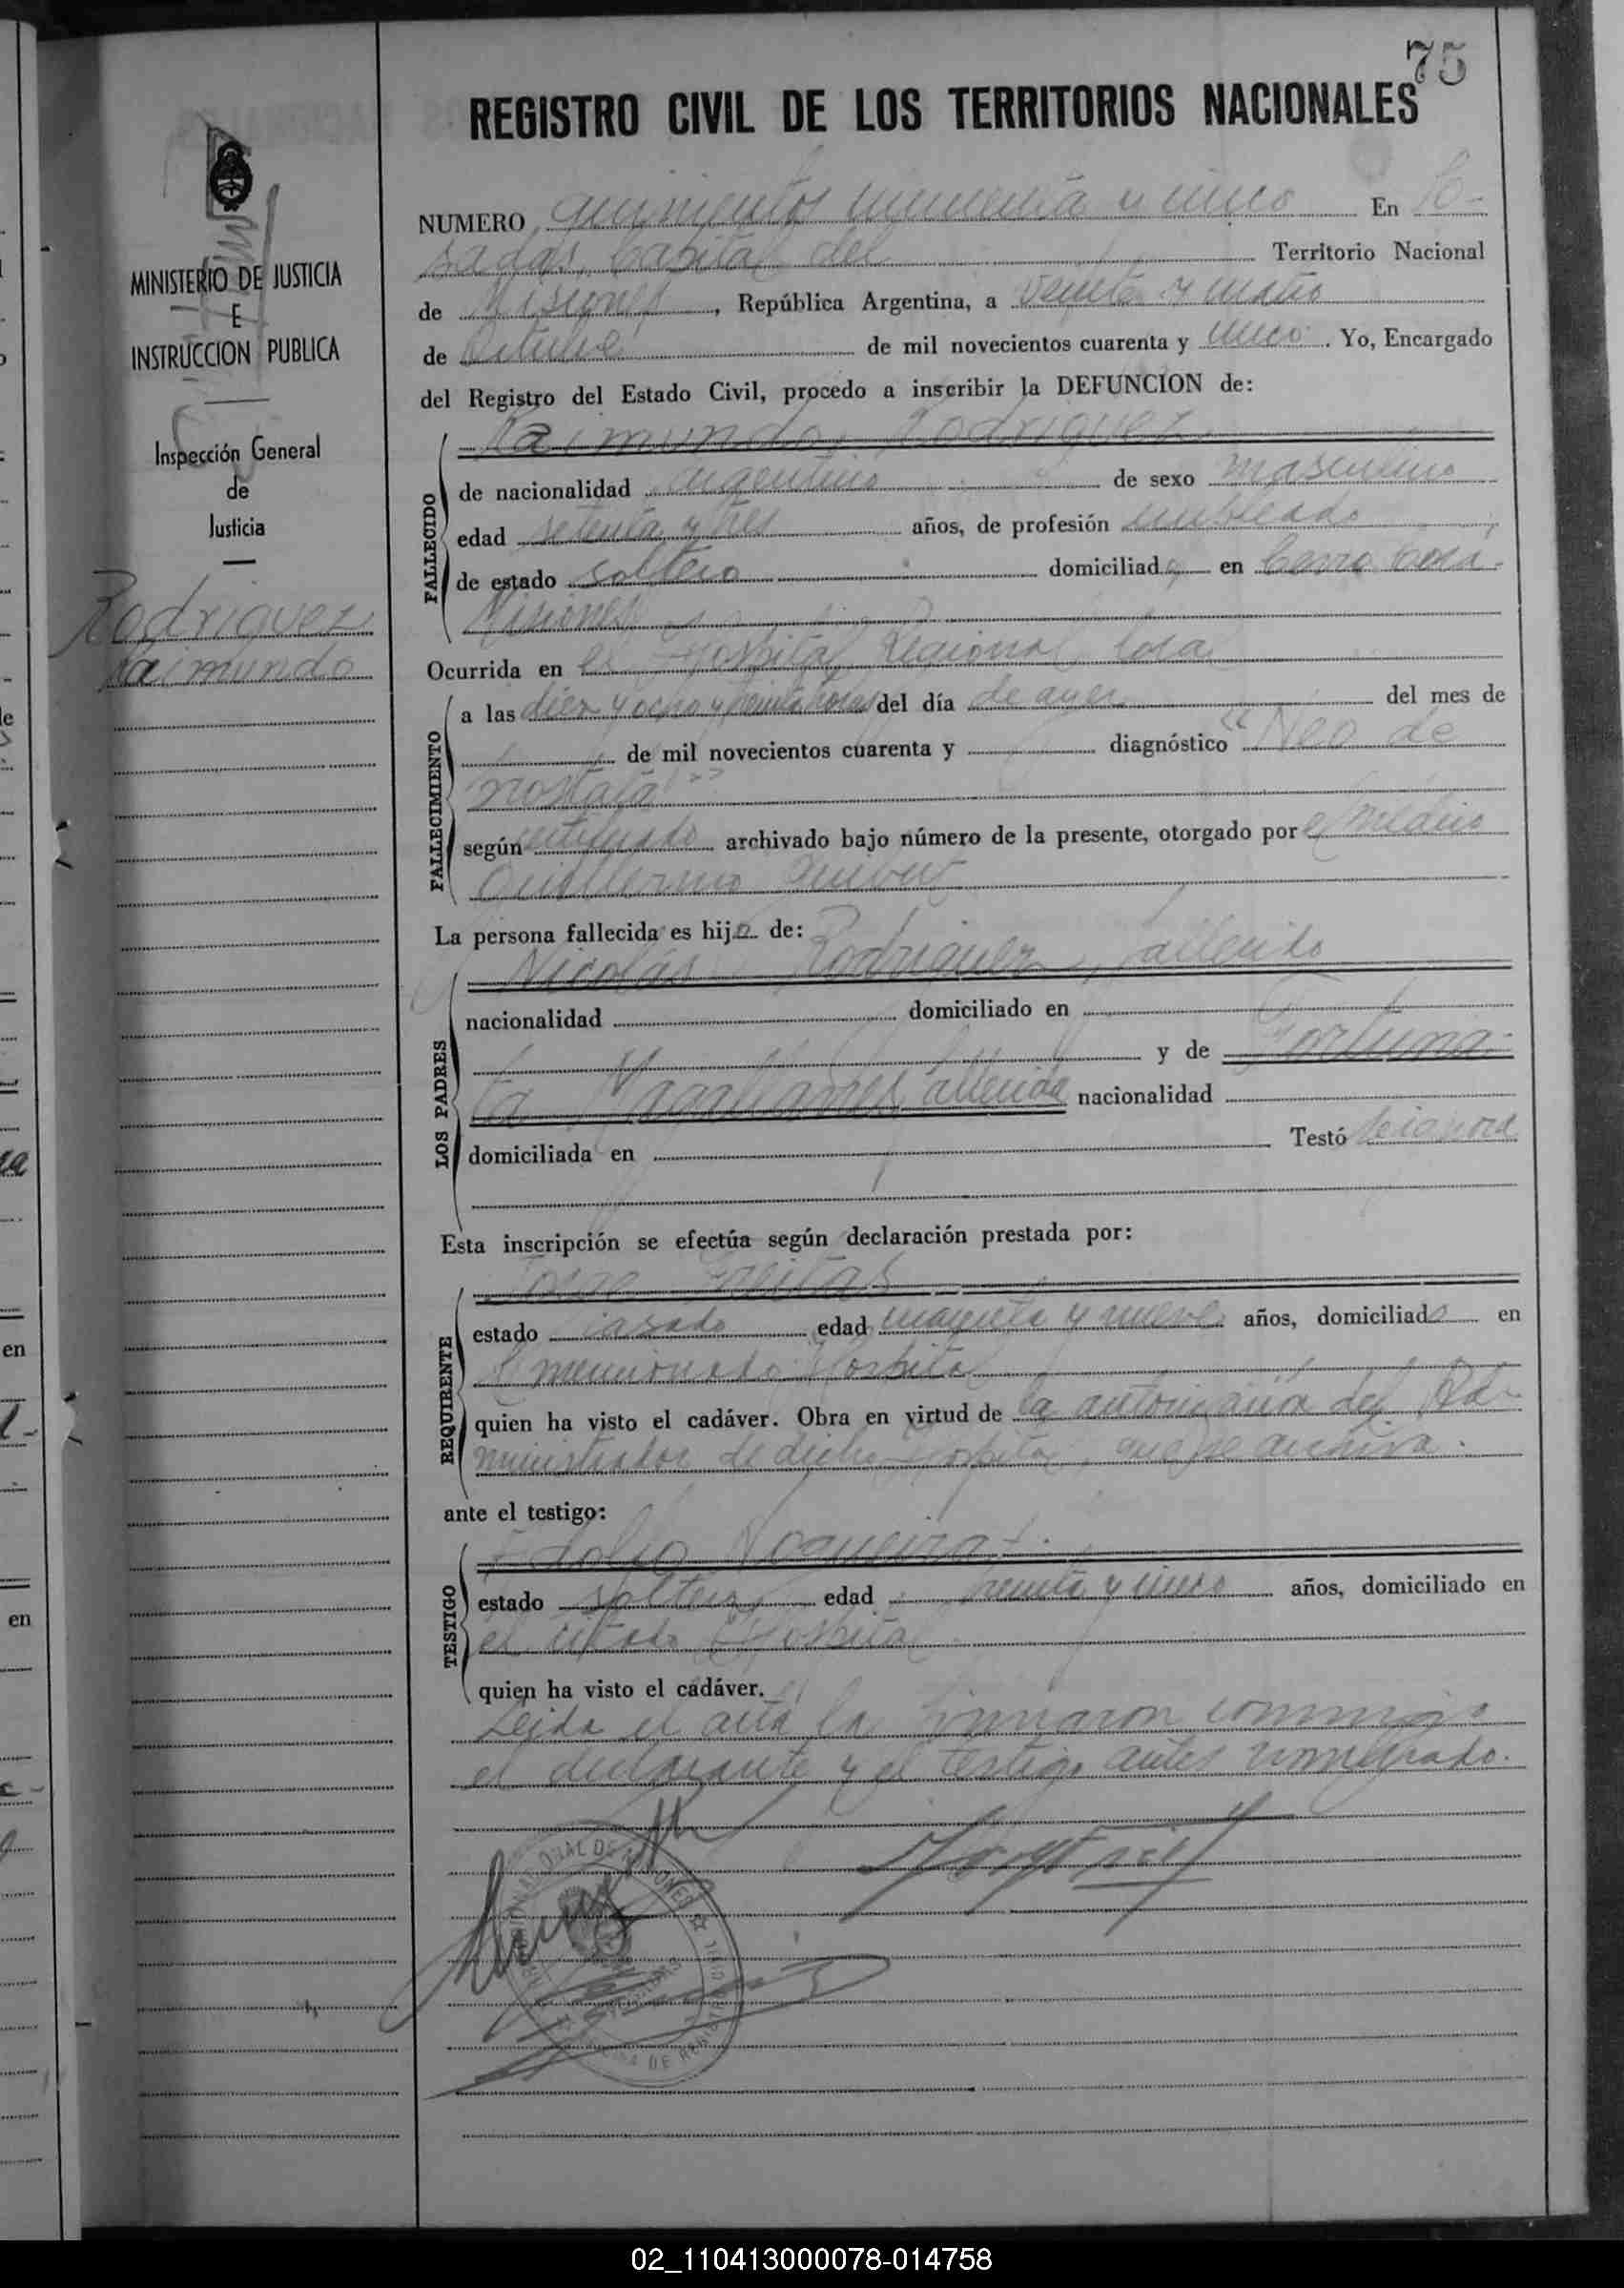 75
REGISTRO CIVIL DE LOS TERRITORIOS NACIONALES
MINISTERIO DE JUSTICIA
E
INSTRUCCION PUBLICA
Inspección General
de
Justicia
Rodriguez
Raimundo
NUMERO quinientos cincuenta y cinco En Po-
sadas, Capital del Territorio Nacional
de Misiones, República Argentina, a veinte y cuatro
de Octubre de mil novecientos cuarenta y cinco. Yo, Encargado
del Registro del Estado Civil, procedo a inscribir la DEFUNCION de:
Raimundo Rodriguez
FALLECIDO
de nacionalidad argentino de sexo masculino
edad setenta y tres años, de profesión empleado
de estado soltero domiciliado en Cerro Corá
Misiones
Ocurrida en el Hospital Regional local
FALLECIMIENTO
a las diez y ocho y treinta horas del día de ayer del mes de
de mil novecientos cuarenta y diagnóstico "Neo de
prostata"
según certificado archivado bajo número de la presente, otorgado por el médico
Guillermo
La persona fallecida es hijo de:
LOS PADRES
Nicolás Rodriguez, fallecido
nacionalidad domiciliado en
y de Fortuna-
ta Magallanes fallecida nacionalidad
domiciliada en Testó se ignora
Esta inscripción se efectúa según declaración prestada por:
REQUIRENTE
Jorge Freitas
estado casado edad cuarenta y nueve años, domiciliado en
el mencionado Hospital
quien ha visto el cadáver. Obra en virtud de la autorización del Ad-
ministrador de dicho Hospital, que se archiva.
ante el testigo:
TESTIGO
Adolfo Nogueira
estado soltero edad treinta y cinco años, domiciliado en
el citado Hospital.
quien ha visto el cadáver.
Leida el acta la firmaron conmigo
el declarante y el testigo antes nombrado.
02_110413000078-014758